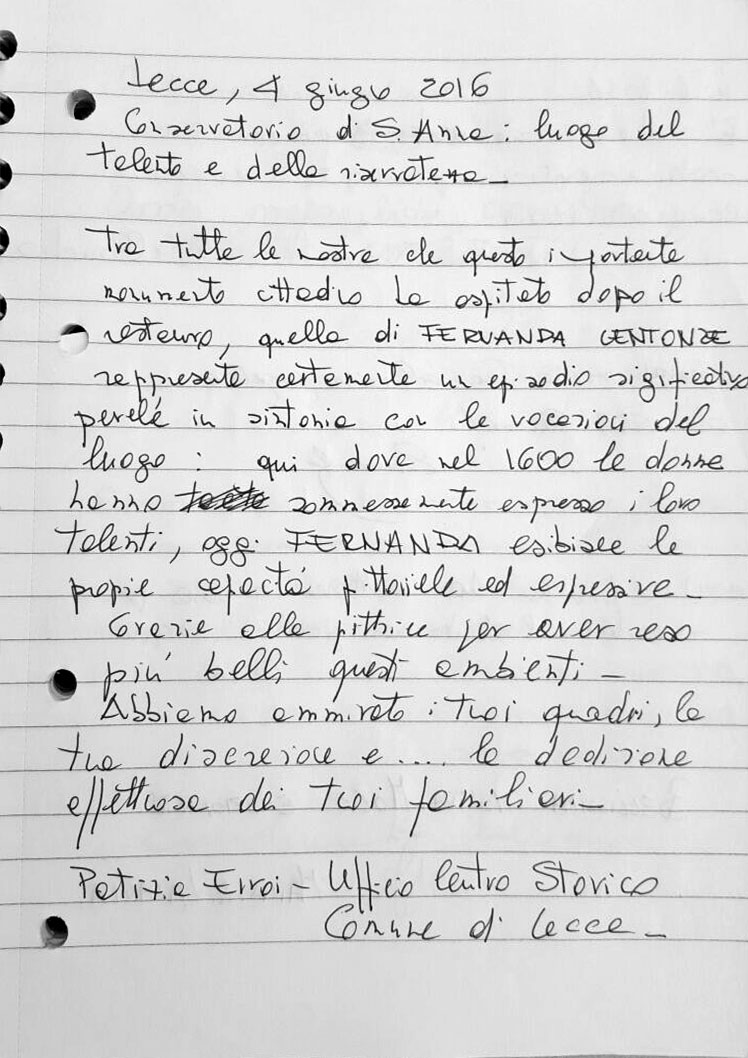 Lecce, 4 giugno 2016
Conservatorio di S. Anna: luogo del
talento e della riservatezza_
Tra tutte le mostre che questo importante
monumento cittadino ha ospitato dopo il
restauro, quella di FERNANDA CENTONZE
rappresenta certamente un episodio significativo
perché in sintonia con le vocazioni del
luogo: qui dove nel 1600 le donne
hanno sommessamente espresso i loro
talenti, oggi FERNANDA esibisce le
proprie capacità pittoriche ed espressive_
Grazie alla pittrice per aver reso
più belli questi ambienti_
Abbiamo ammirato i tuoi quadri, la
tua discrezione e .... la dedizione
affettuosa dei tuoi familiari_
Patizia Erroi - Ufficio Centro Storico
Comune di Lecce_